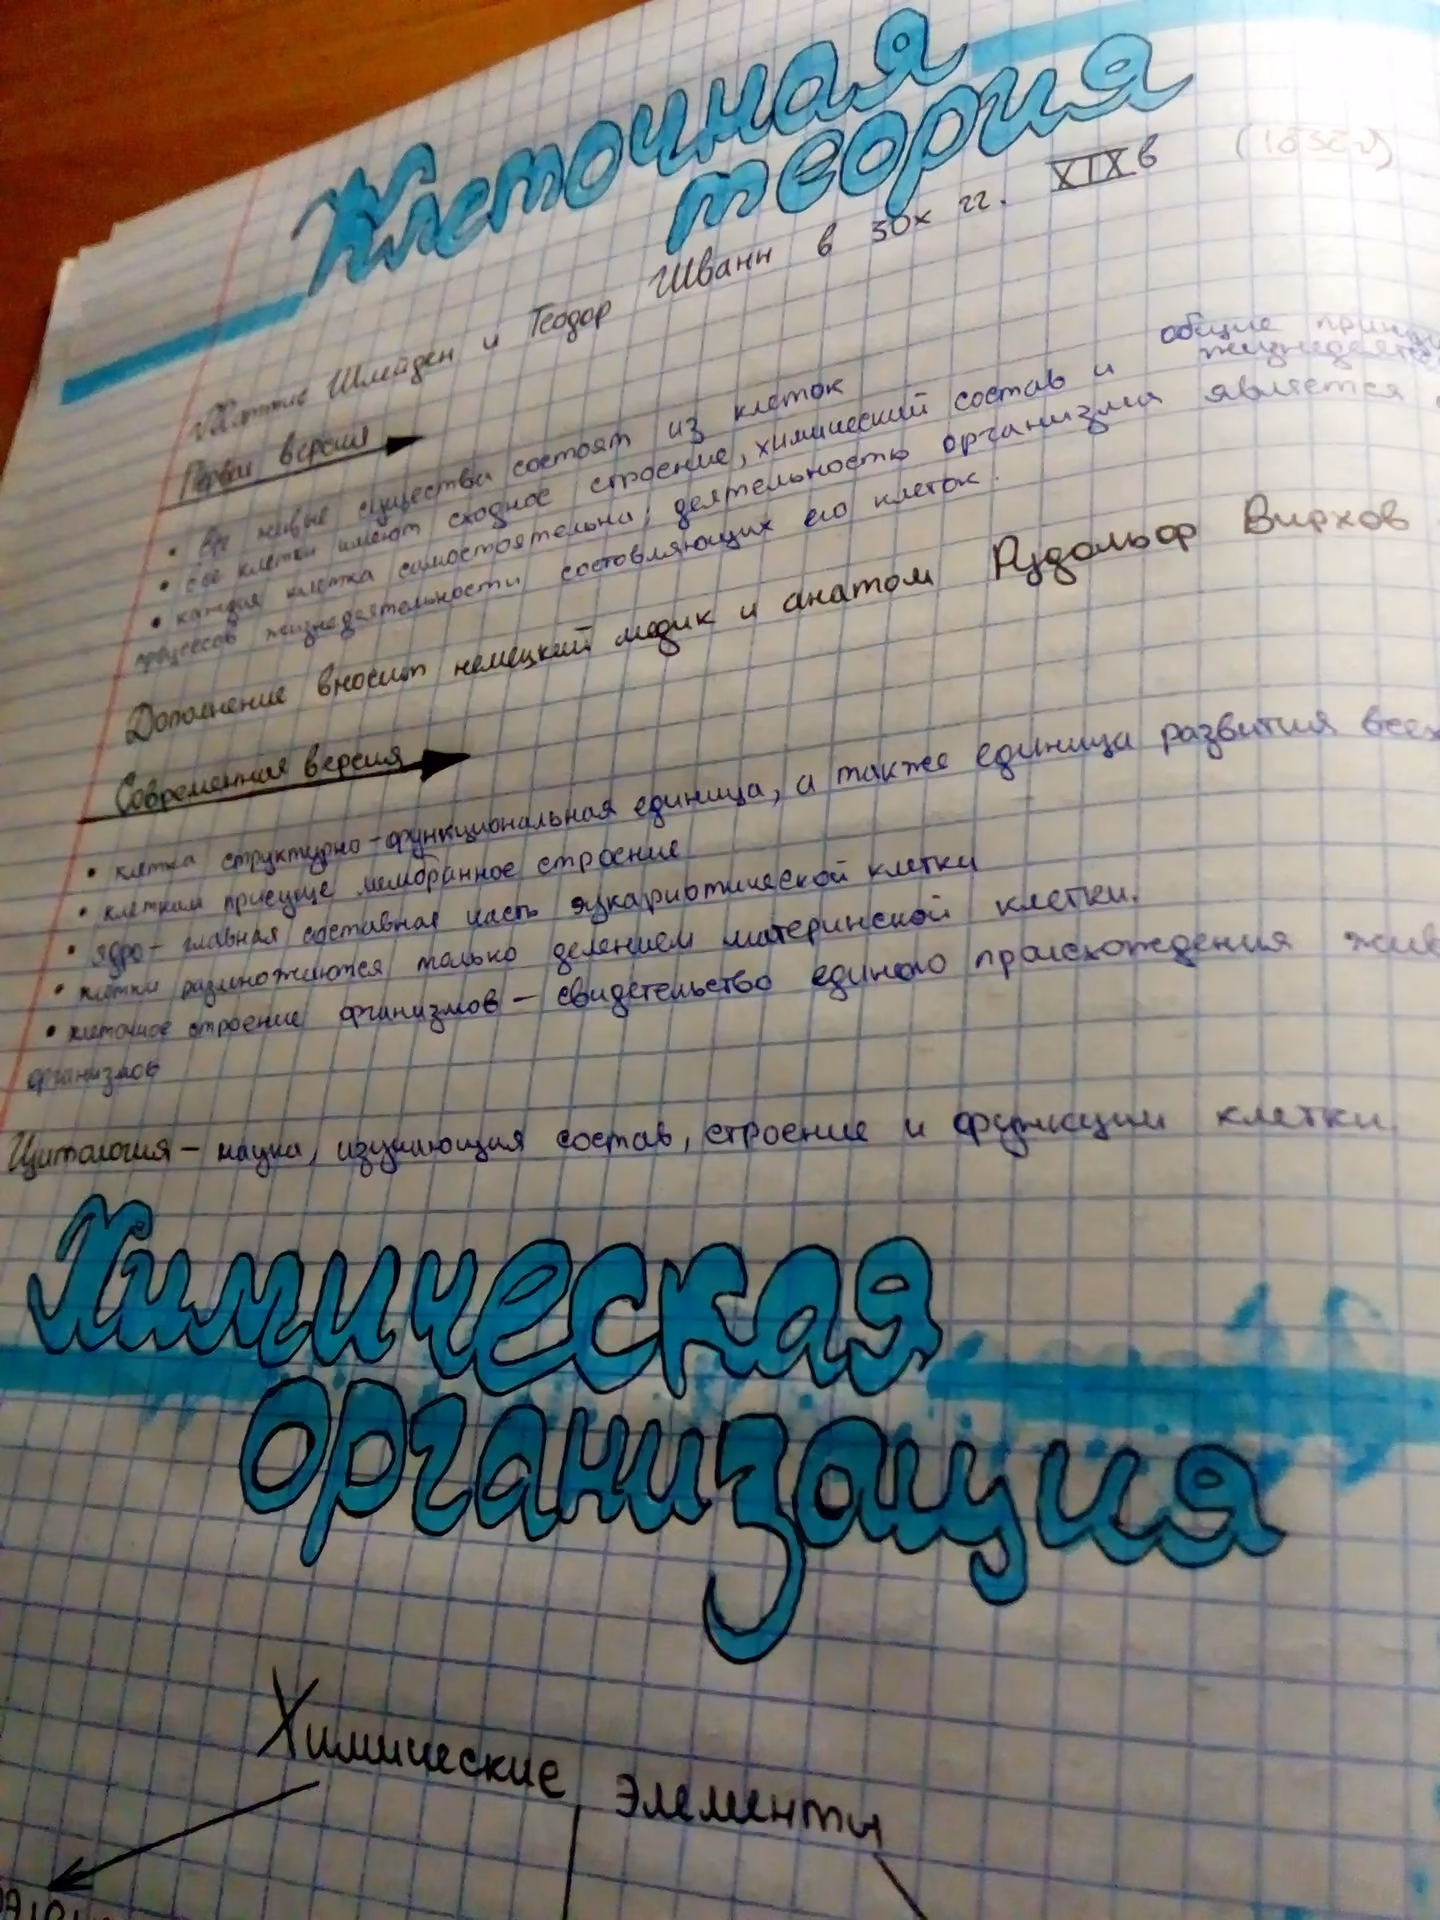 Клеточная
теория
Маттис Шлейден и Теодор Шванн в 30х гг. XIX в
Первая версия
• Все живые существа состоят из клеток
• все клетки имеют сходное строение, химический состав и общие
• каждая клетка самостоятельна; деятельность организма является
процессов жизнедеятельности состовляющих его клеток.
Дополнение вносит немецкий медик и анатом Рудольф Вирхов
Современная версия
• клетка структурно-функциональная единица, а также единица развития всех
• клеткам присуще мембранное строение
• ядро - главная составная часть эукариотической клетки
• клетки размножаются только делением материнской клетки.
• клеточное строение организмов - свидетельство единого происхождения
организмов
Цитология - наука, изучающая состав, строение и функции клетки
Химическая
организация
Химические элементы